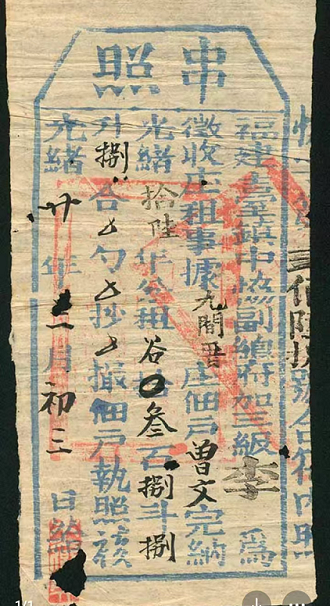 串照
福建臺澎鎮中協副總府加三級李 為
徵收庄租事據九閣厝庄佃戶曾文完納
光緒拾陸年分租谷〇叁石捌斗捌
升捌合 勺 抄 撮佃戶執照須
光緒廿年二月初三日給